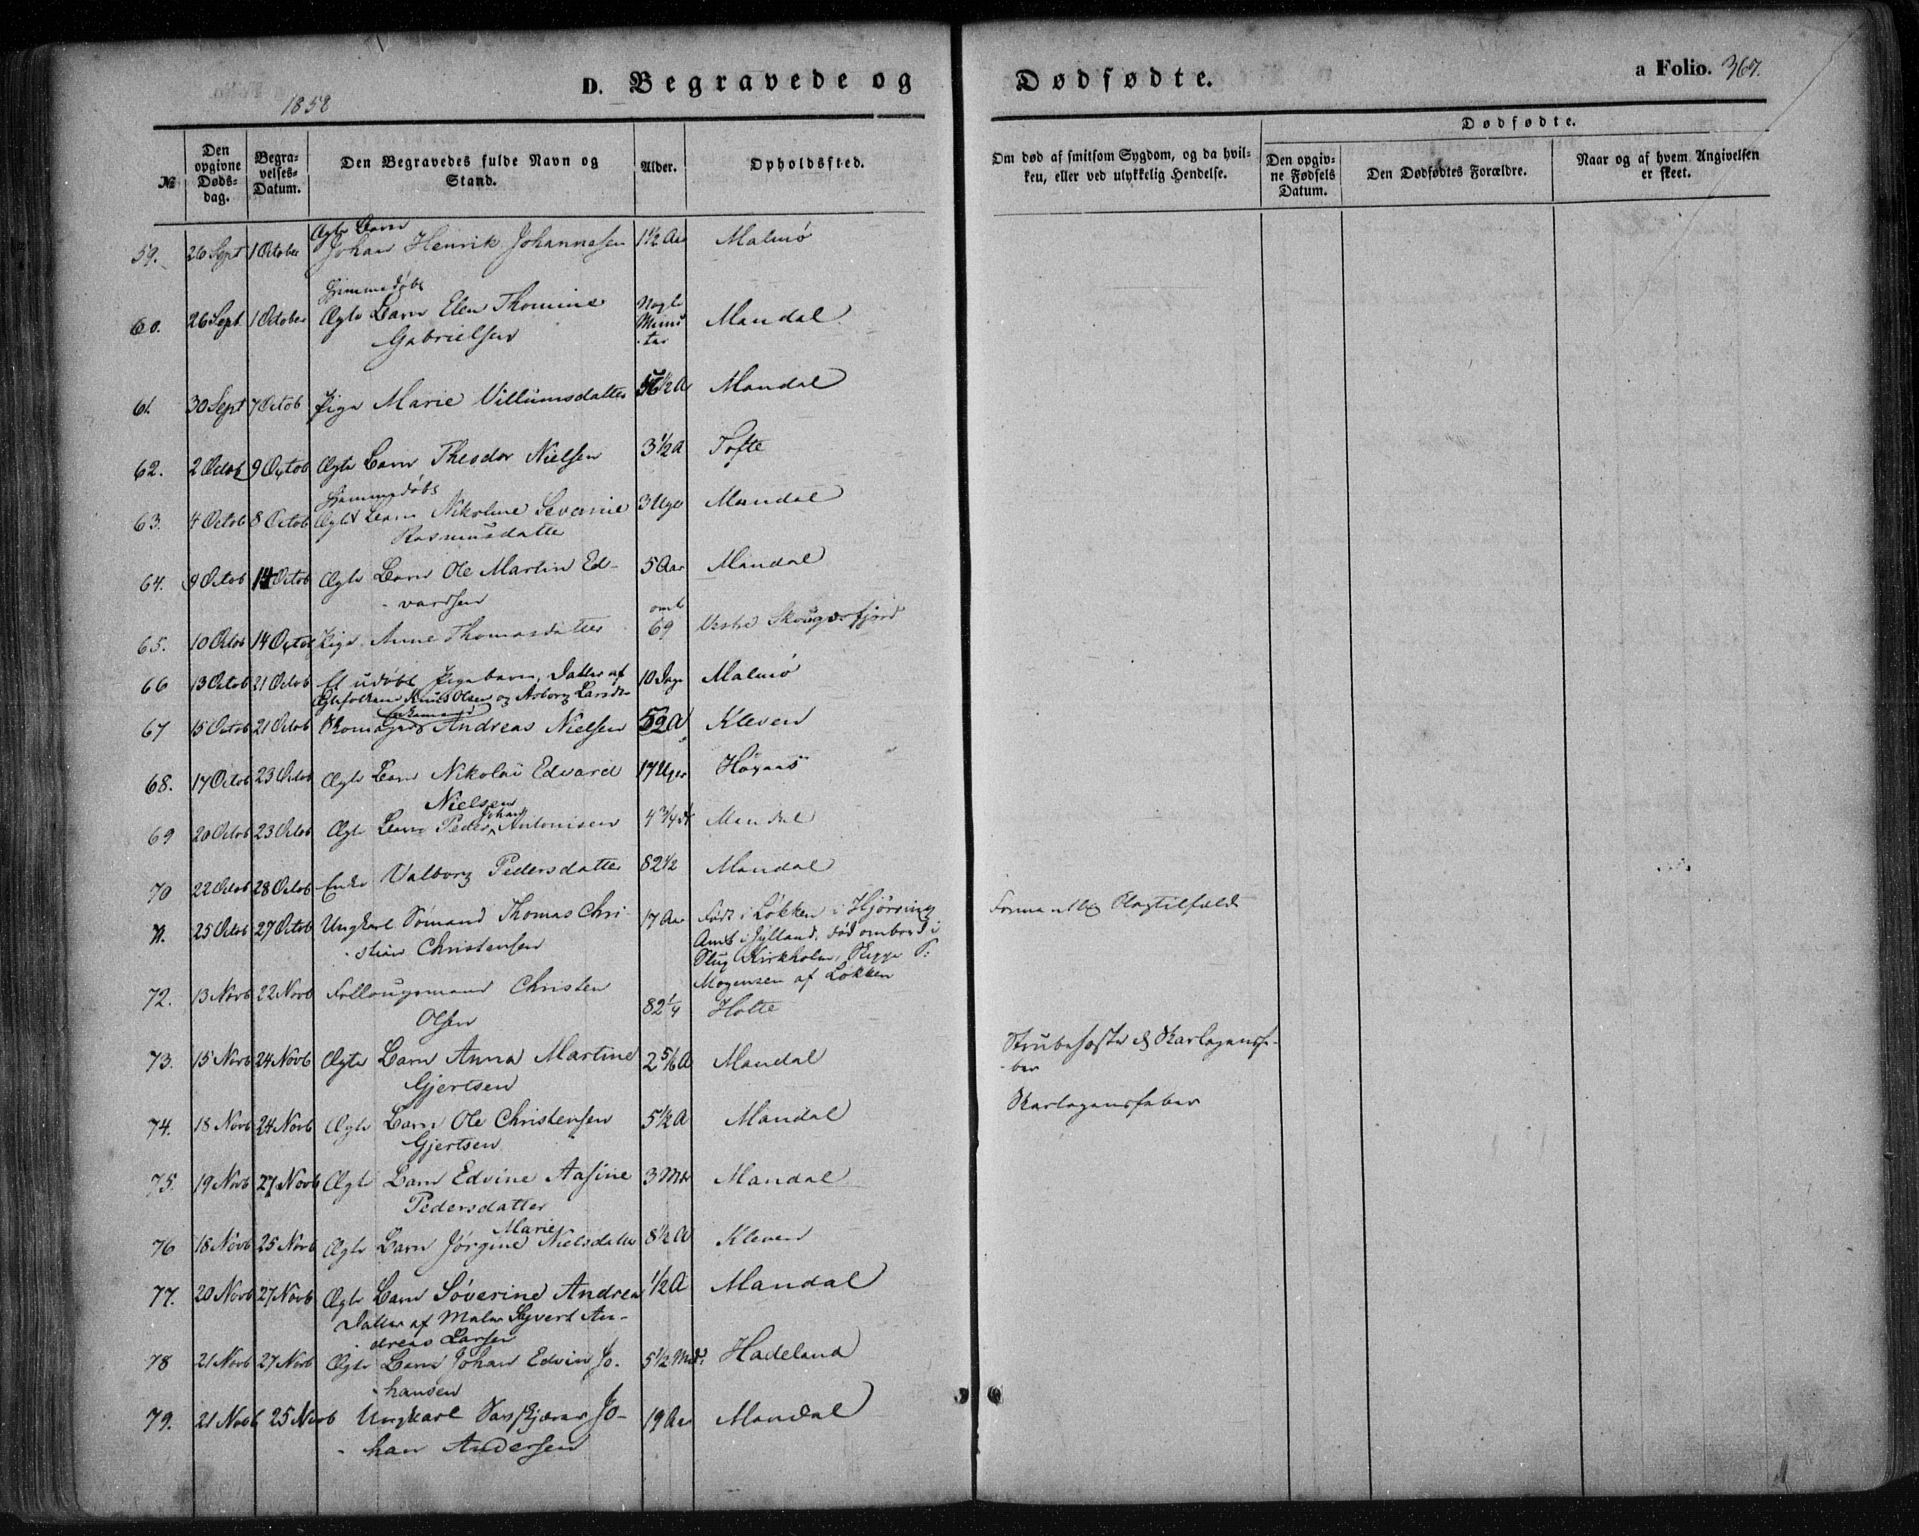 D. Begravede og Dødfødte.
a Folio. 367.
1858
№
Den opgivne Døds-dag.
Begra-velses-Datum.
Den Begravedes fulde Navn og Stand.
Alder.
Opholdssted.
Om død af smitsom Sygdom, og da hvil-ken, eller ved ulykkelig Hendelse.
Dødfødte.
Den opgiv-ne Fødsels Datum.
Den Dødfødtes Forældre.
Naar og af hvem Angivelsen er skeet.
59. 26 Sept 1 October Ægte Barn Johan Henrik Johannesen 1 1/2 Aar Malmø
60. 26 Sept 1 October Hjemmedøbt Ægte Barn Elen Thomine Gabrielsen Nogle Minutter Mandal
61. 30 Sept 7 Octob Pige Marie Villumsdatter 56 1/2 A Mandal
62. 2 Octob 9 Octob Ægte Barn Theodor Nielsen 3 1/2 A Tofte
63. 4 Octob 8 Octob Hjemmedøbt Ægte Barn Nikoline Severine Rasmusdatter 3 Uger Mandal
64. 9 Octob 14 Octob Ægte Barn Ole Martin Ed-
vardsen 5 Aar Mandal
65. 10 Octob 14 Octob Pige Anne Thomasdatter omt 69 Vestre Skougsfjord
66 13 Octob 21 Octob Et udøbt Pigebarn, Datter af
Ægtefolkene Knud Olsen og Asborg Larsdr 10 Dage Malmø
67 15 Octob 21 Octob Enkemand Skomager Andreas Nielsen 59 A Kleven
68. 17 Octob 23 Octob Ægte Barn Nikolai Edvard
Nielsen 17 Uger Høgaas
69 20 Octob 23 Octob Ægte Barn Peder Johan Antonisen 4 3/4 A Mandal
70 22 Octob 28 Octob Enke Valborg Pedersdatter 82 1/2 Mandal
71. 25 Octob 27 Octob Ungkarl Sømand Thomas Chri-
stian Christensen 17 Aar Født i Løkken i Hjørring
Amt i Jylland, død ombord i
Slup Kirkholm, Skipper P:
Mogensen af Løkken Formentlig Slagtilfælde
72. 13 Novb 22 Novb Follougsmand Christen
Olsen 82 1/4 Holte
73. 15 Novb 24 Novb Ægte Barn Anna Martine
Gjertsen 2 5/6 A Mandal Strubehoste & Skarlagensfe-
ber
74. 18 Novb 24 Novb Ægte Barn Ole Christensen
Gjertsen 5 1/2 A Mandal Skarlagensfeber
75. 19 Novb 27 Novb Ægte Barn Edvine Aasine
Pedersdatter 3 Mdr Mandal
76 18 Novb 25 Novb Ægte Barn Jørgine Marie Nielsdatter 8 1/2 A Kleven
77. 20 Novb 27 Novb Ægte Barn Søverine Andrea
Datter af Maler Syvert An-
dreas Larsen 1/2 A Mandal
78 21 Novb 27 Novb Ægte Barn Johan Edvin Jo-
hansen 5 1/2 Mdr Hadeland
79. 21 Novb 25 Novb Ungkarl Jo-
han Andersen 19 Aar Mandal